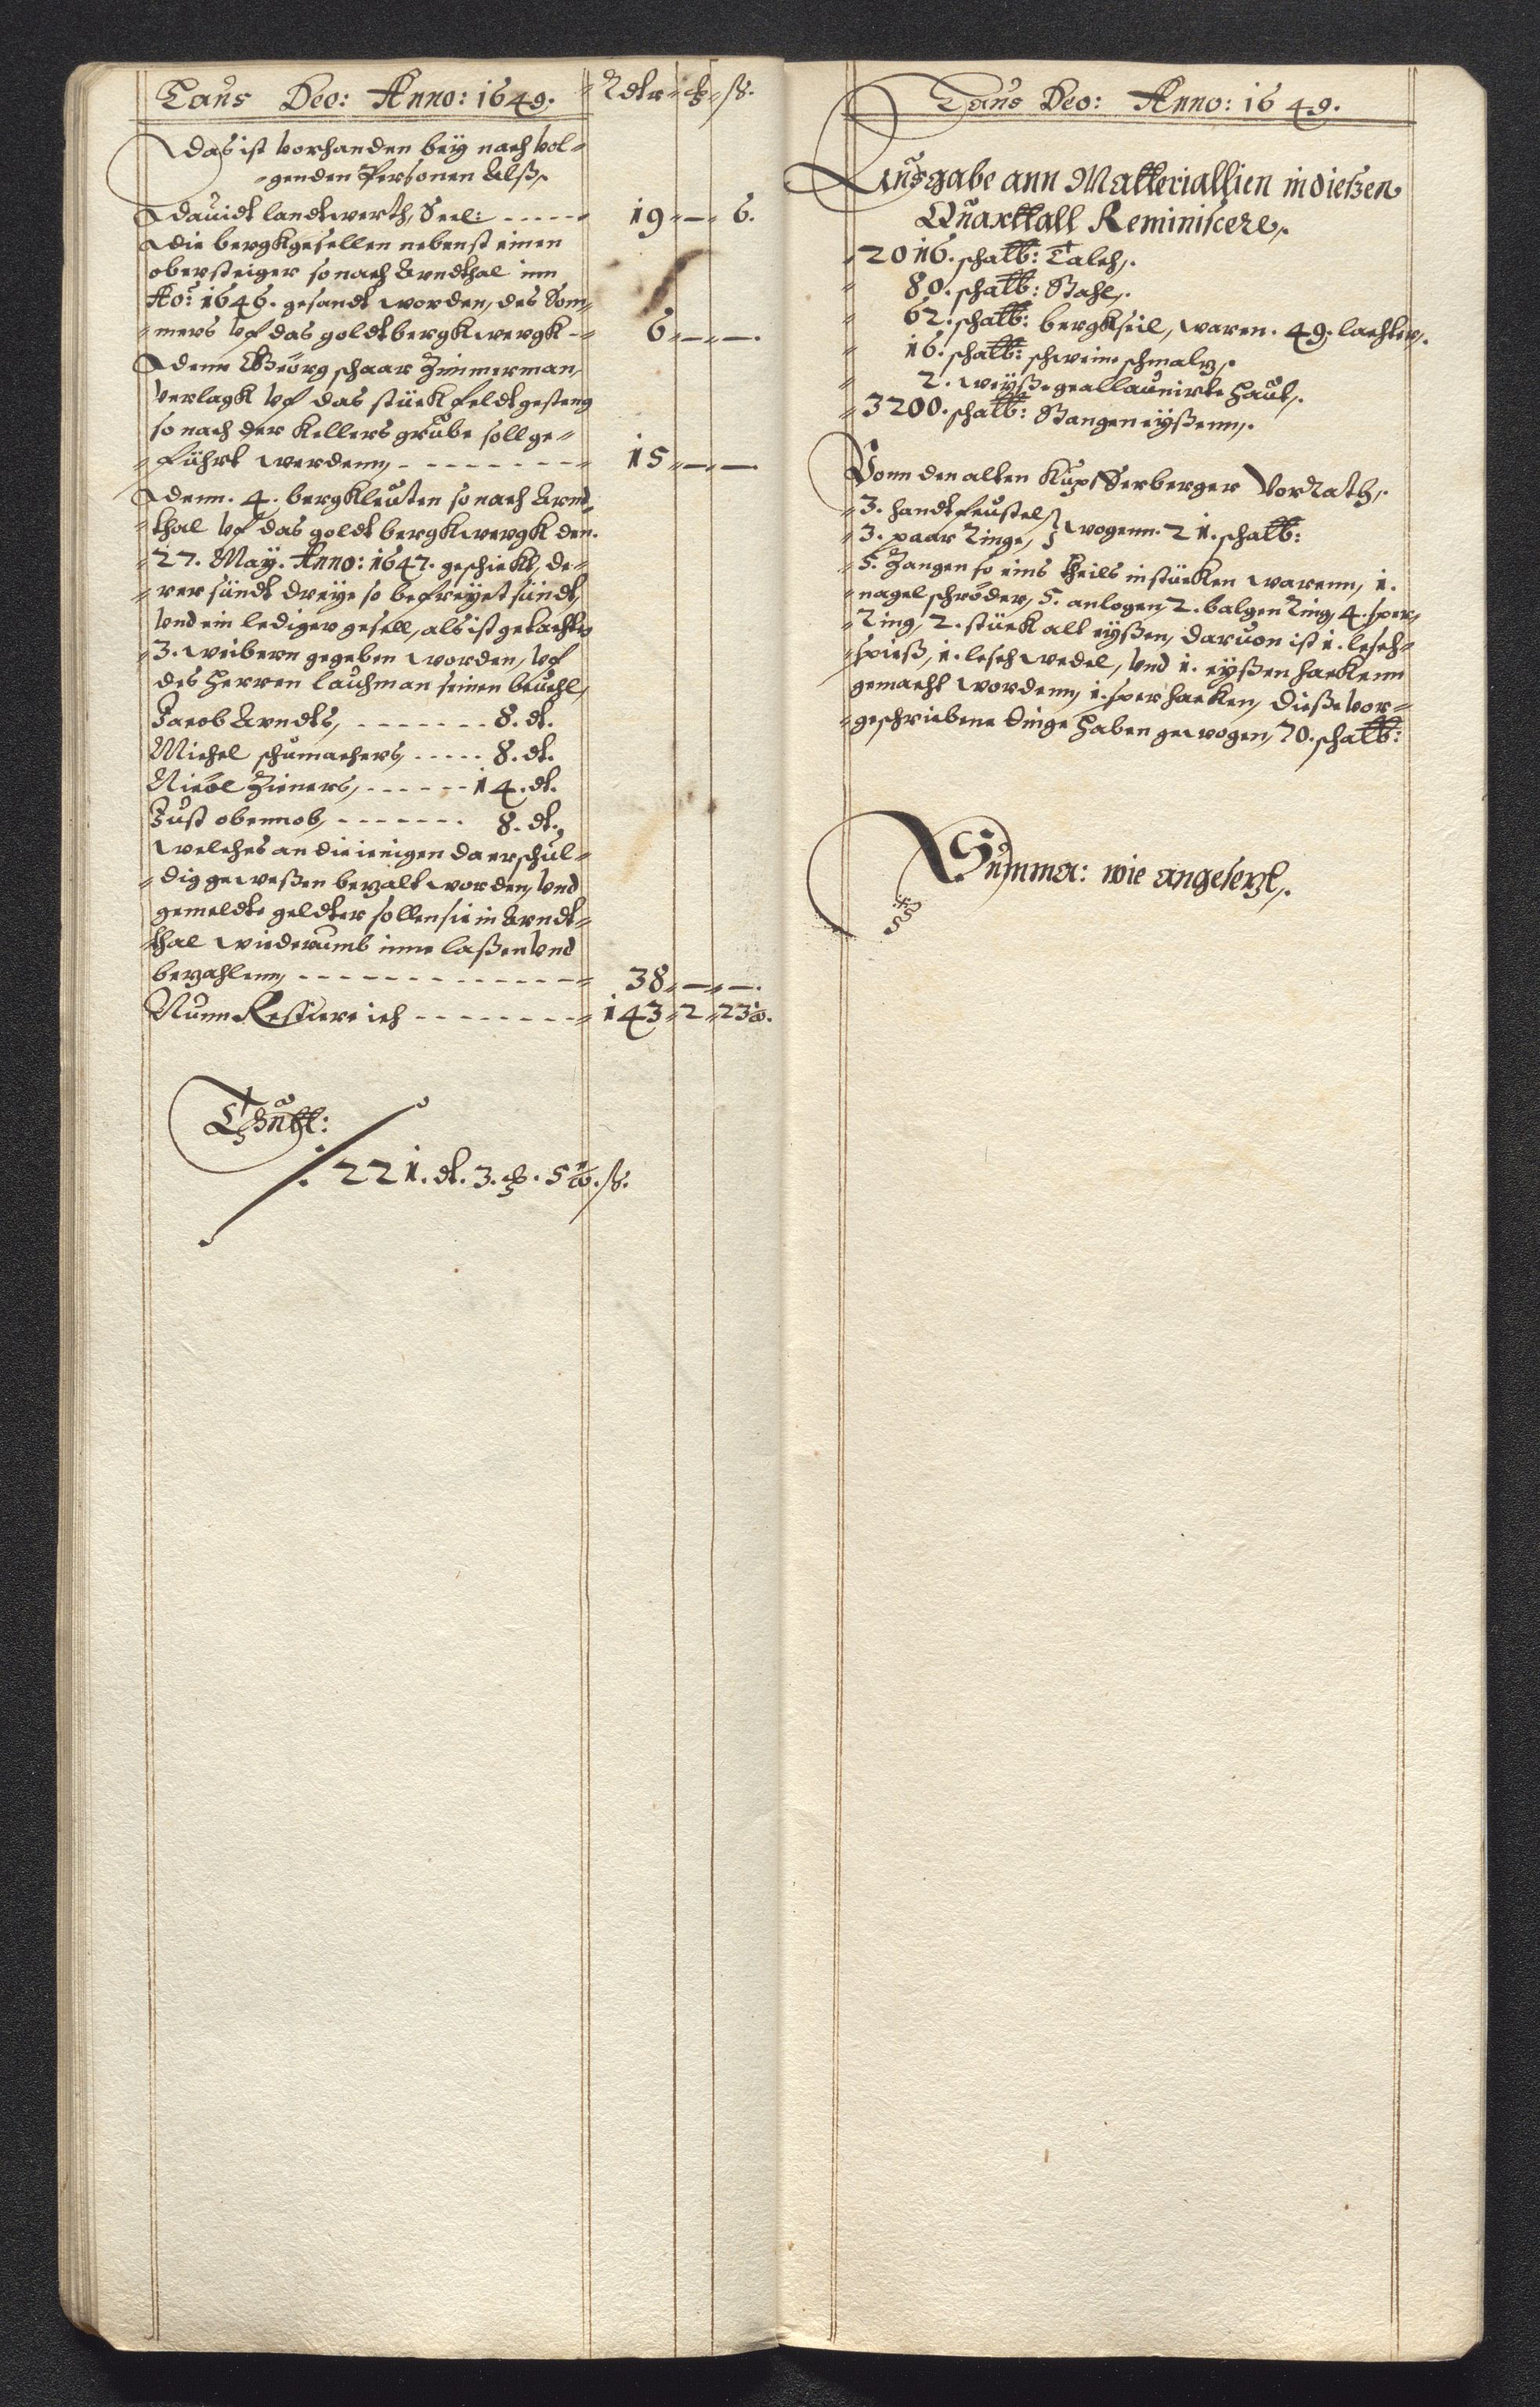 Laus Deo: Anno: 1649. Rdtr ß.
das ist vorhanden beÿ nach vol-
genden Personen Alß,
dauidt landtwerth, Seel: - - - - - 19 — 6.
die bergkgesellen nebenst einen
obersteiger so nach Arndthal inn
Ao: 1646. gesandt worden, des Som-
mers vf das goldtbergkwergk - 6 — —.
denn Geörg schaar Zimmerman,
verlagk vf das stück feldtgesteng
so nach der Kellers grube soll ge-
führt werdenn, - - - - - - - - 15 — —
denn. 4. bergkleuten so nach Arnd-
thal vf das goldt bergkwergk den.
27. Maÿ. Anno: 1647. geschickt, de-
rer sündt dreÿe so befreÿet sündt,
vnd ein lediger gesell, als ist gedachten
3. weibern gegeben worden, vf
des Herren lauchman seinen beuehl,
Jacob Arndts, - - - - - - - 8. dt.
Michel schumachers, - - - - - 8. dt.
Nicol Zieners, - - - - - - 14. dt.
Just obennob, - - - - - - - 8. dt.
welches an die ienigen da er schul-
dig geweßen bezalt worden, vnd
gemeldte geldter sollen sie in Arndt-
thal wiederumb inne laßen vnd
bezahlenn, - - - - - - - - - - - - - 38 — —.
Nunn Restiere ich - - - - - - - - 143 2 23
221. dt. 3. 5 ß.
Laus Deo: Anno: 1649.
Ausgabe ann Matteriallien in dießen
Quarttall Reminiscere,
2016. schalb: Talch,
80. schalb: Stahl,
62. schalb: bergkseil, waren. 49. lachter.
16. schalb: schweine schmaltz,
2. weÿße geallaunirte Haut,
3200. schalb: Stangen eÿßenn,
Vonn den alten Kupfferberger Vorrath,
3. handtfeustel
3. paar Ringe, } wogenn. 21. schalb:
5. Zangen so eins theils in stücken warenn, 1.
nagel schroder, 5. anlogen, 2. balgen Ring, 4. sper,
Ring, 2. stück alt eÿßen, daruon ist 1. lesch-
spieß, 1. leschwedel, vnd 1. eÿßen hackenn
gemacht wordenn, 1. sper hacken, Dieße vor-
geschriebene dinge haben gewogen, 70. schalb:
Summa: wie angesetzt,